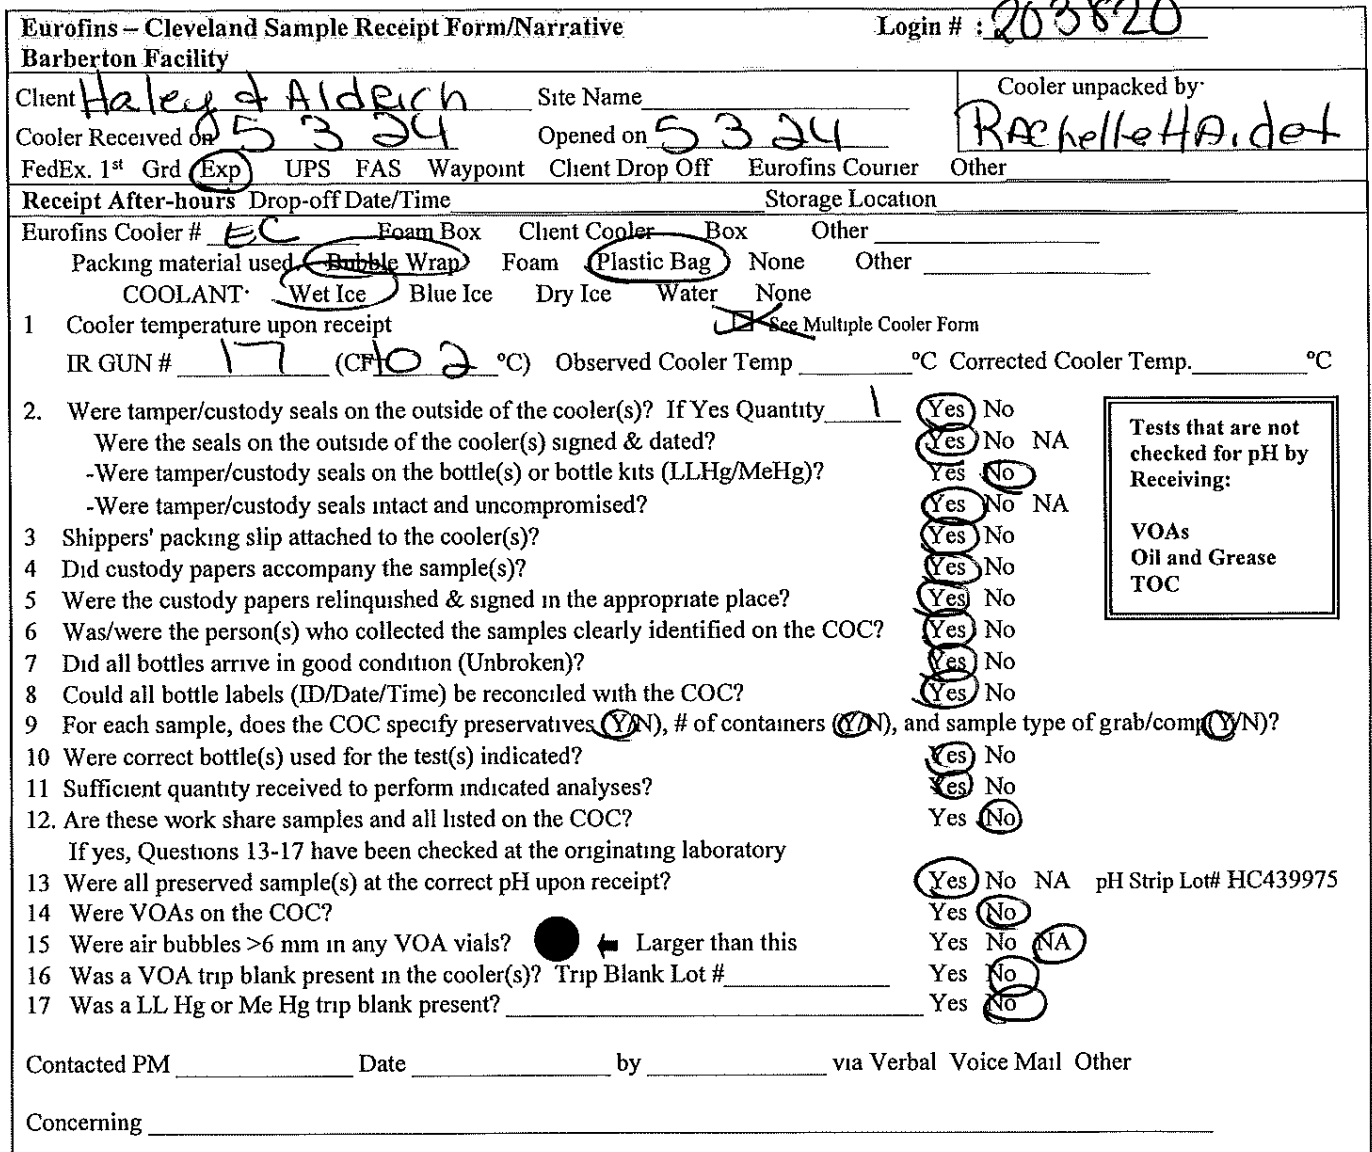 Eurofins – Cleveland Sample Receipt Form/Narrative Login # : 203820
Barberton Facility
Client Haley & Aldrich Site Name Cooler unpacked by:
Cooler Received on 5 3 24 Opened on 5 3 24 Rachelle Haidet
FedEx. 1st Grd Exp UPS FAS Waypoint Client Drop Off Eurofins Courier Other
Receipt After-hours Drop-off Date/Time Storage Location
Eurofins Cooler # EC Foam Box Client Cooler Box Other
Packing material used. Bubble Wrap Foam Plastic Bag None Other
COOLANT· Wet Ice Blue Ice Dry Ice Water None
1 Cooler temperature upon receipt See Multiple Cooler Form
IR GUN # 17 (CF +0 2 °C) Observed Cooler Temp °C Corrected Cooler Temp. °C
2. Were tamper/custody seals on the outside of the cooler(s)? If Yes Quantity 1 Yes No
Were the seals on the outside of the cooler(s) signed & dated? Yes No NA
-Were tamper/custody seals on the bottle(s) or bottle kits (LLHg/MeHg)? Yes No
-Were tamper/custody seals intact and uncompromised? Yes No NA
3 Shippers' packing slip attached to the cooler(s)? Yes No
4 Did custody papers accompany the sample(s)? Yes No
5 Were the custody papers relinquished & signed in the appropriate place? Yes No
6 Was/were the person(s) who collected the samples clearly identified on the COC? Yes No
7 Did all bottles arrive in good condition (Unbroken)? Yes No
8 Could all bottle labels (ID/Date/Time) be reconciled with the COC? Yes No
9 For each sample, does the COC specify preservatives (Y/N), # of containers (Y/N), and sample type of grab/comp (Y/N)?
10 Were correct bottle(s) used for the test(s) indicated? Yes No
11 Sufficient quantity received to perform indicated analyses? Yes No
12. Are these work share samples and all listed on the COC? Yes No
If yes, Questions 13-17 have been checked at the originating laboratory
13 Were all preserved sample(s) at the correct pH upon receipt? Yes No NA pH Strip Lot# HC439975
14 Were VOAs on the COC? Yes No
15 Were air bubbles >6 mm in any VOA vials? Larger than this Yes No NA
16 Was a VOA trip blank present in the cooler(s)? Trip Blank Lot # Yes No
17 Was a LL Hg or Me Hg trip blank present? Yes No
Tests that are not
checked for pH by
Receiving:
VOAs
Oil and Grease
TOC
Contacted PM Date by via Verbal Voice Mail Other
Concerning